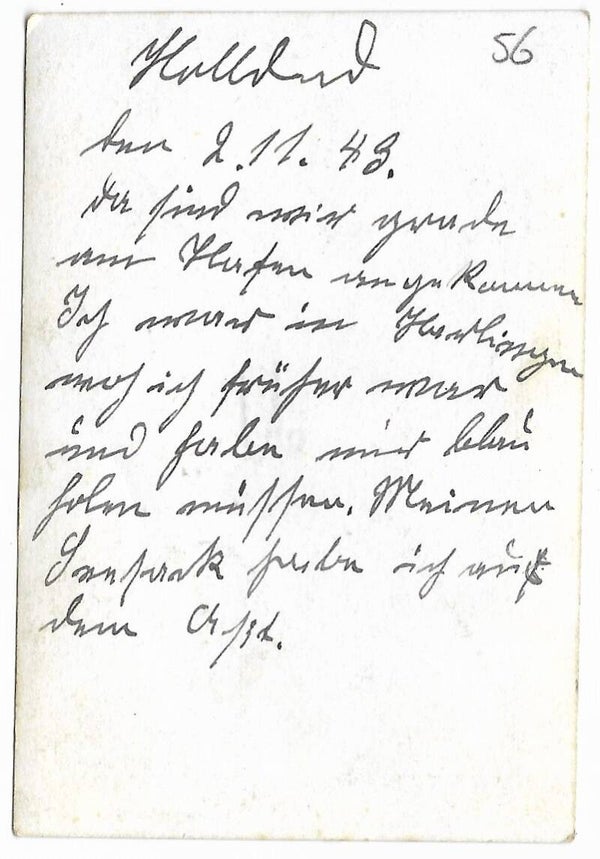 Holland
56
den 2.11.43.
Da sind wir grade
am Hafen angekommen
Ich war in Harlingen
woh ich früher war
und habe mir blau
holen müssen. Meinen
Seesack habe ich auf
dem Ast.